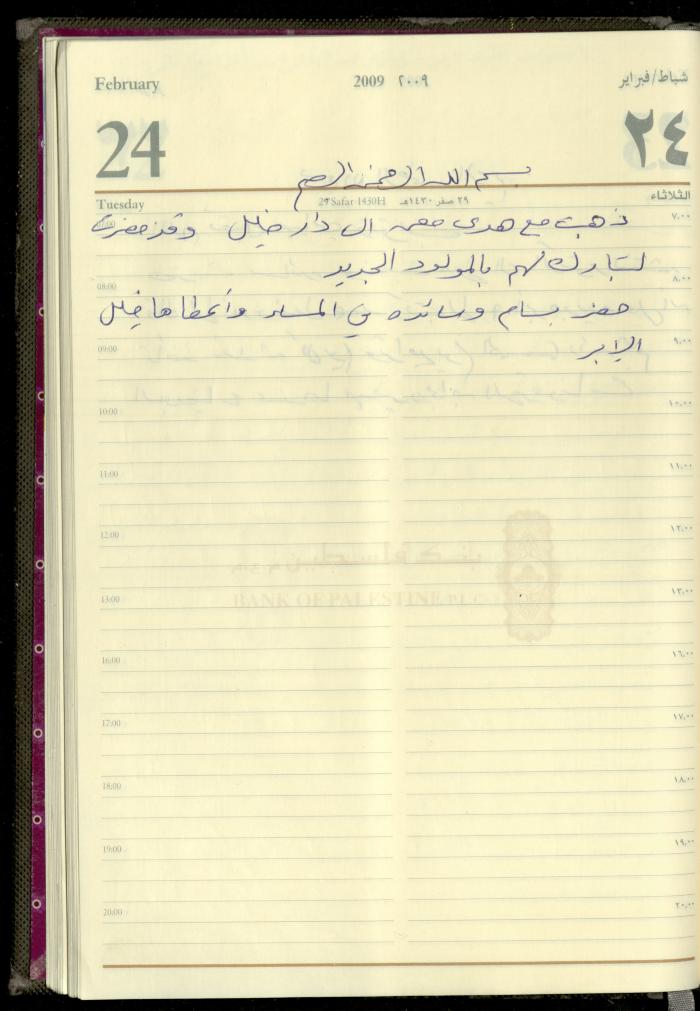 February 2009 ٢٠٠٩ شباط/فبراير
24 ٢٤
بسم الله الرحمن الرحيم
Tuesday 29 Safar 1430H ٢٩ صفر ١٤٣٠هـ الثلاثاء
ذهبت مع هدى الى دار خليل وقد حضرت
لتبارك لهم بالمولود الجديد
حضر بسام وسائده في المساء وأعطاها خليل
الإبر
07:00 ٧,٠٠
08:00 ٨,٠٠
09:00 ٩,٠٠
10:00 ١٠,٠٠
11:00 ١١,٠٠
12:00 ١٢,٠٠
BANK OF PALESTINE
13:00 ١٣,٠٠
16:00 ١٦,٠٠
17:00 ١٧,٠٠
18:00 ١٨,٠٠
19:00 ١٩,٠٠
20:00 ٢٠,٠٠